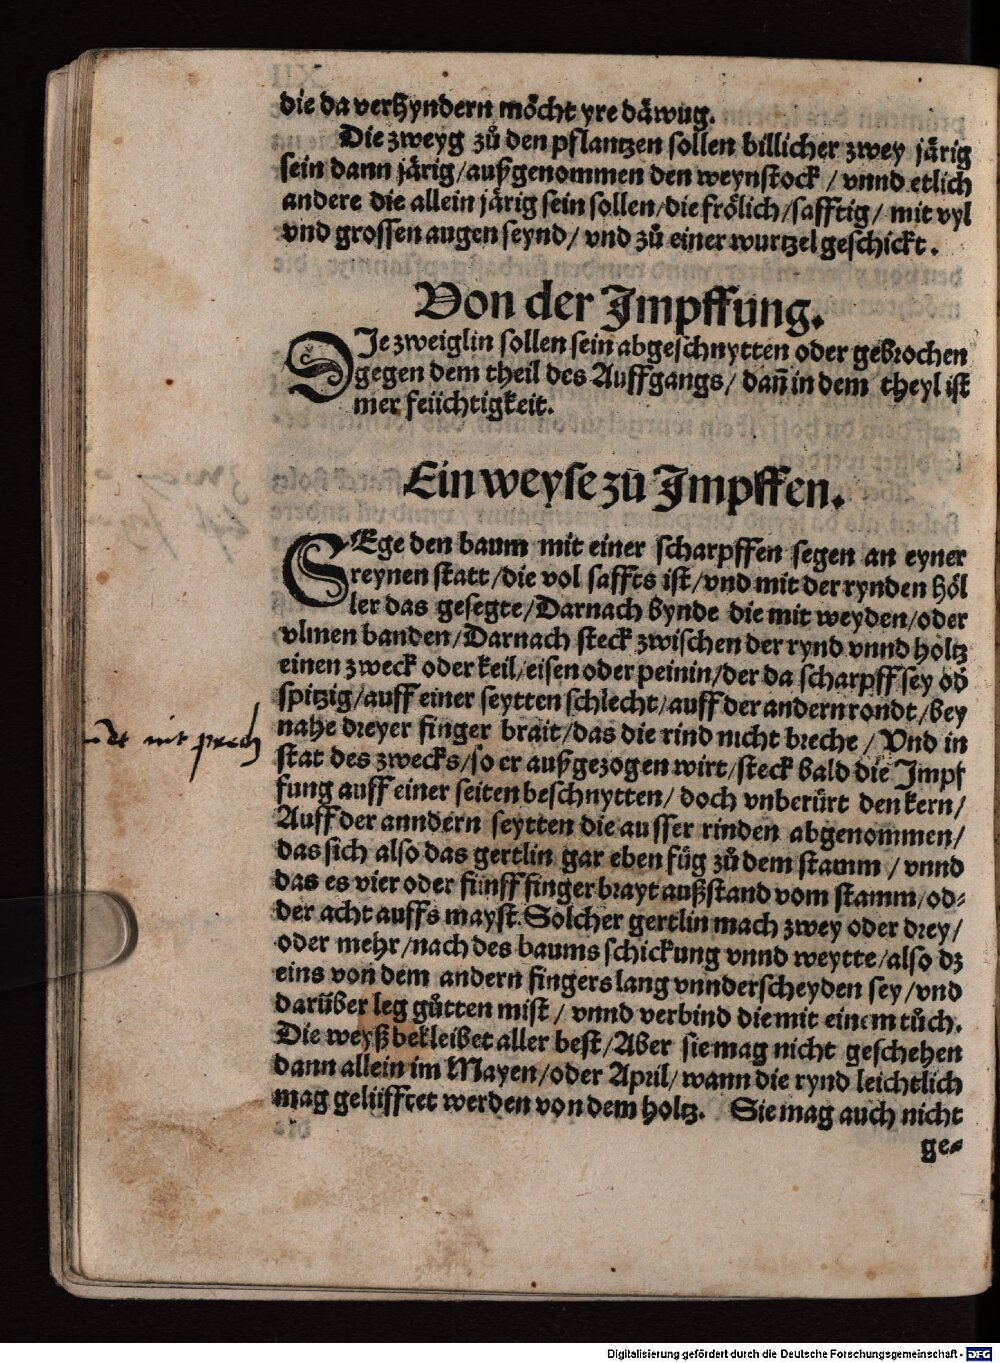 die da verhyndern möcht yre däwug.
Die zweyg zů den pflantzen sollen billicher zwey järig
sein dann järig/außgenommen den weynstock / vnnd etlich
andere die allein järig sein sollen/die frölich/safftig/ mit vyl
vnd grossen augen seynd/ vnd zů einer wurtzel geschickt.
Von der Jmpffung.
DJe zweiglin sollen sein abgeschnytten oder gebrochen
gegen dem theil des Auffgangs/ dañ in dem theyl ist
mer feüchtigkeit.
Ein weyse zů Jmpffen.
SEge den baum mit einer scharpffen segen an eyner
reynen statt/die vol saffts ist/vnd mit der rynden höl
ler das gesegte/Darnach bynde die mit weyden/oder
vlmen banden/Darnach steck zwischen der rynd vnnd holtz
einen zweck oder keil/eisen oder peinin/der da scharpff sey oď
spitzig/auff einer seytten schlecht/auff der andern rondt/bey
nahe dreyer finger brait/das die rind nicht breche / Vnd in
stat des zwecks/so er außgezogen wirt/steck bald die Jmpf
fung auff einer seiten beschnytten/ doch vnberürt den kern/
Auff der anndern seytten die ausser rinden abgenommen/
das sich also das gertlin gar eben füg zů dem stamm / vnnd
das es vier oder fünff finger brayt außstand vom stamm/od⸗
der acht auffs mayst. Solcher gertlin mach zwey oder drey/
oder mehr/nach des baums schickung vnnd weytte/also dz
eins von dem andern fingers lang vnnderscheyden sey/vnd
darüber leg gůtten mist / vnnd verbind die mit einem tůch.
Die weyß bekleibet aller best/Aber sie mag nicht geschehen
dann allein im Mayen/oder April/wann die rynd leichtlich
mag gelüfftet werden von dem holtz. Sie mag auch nicht
ge⸗
nit prech
Digitalisierung gefördert durch die Deutsche Forschungsgemeinschaft - DFG